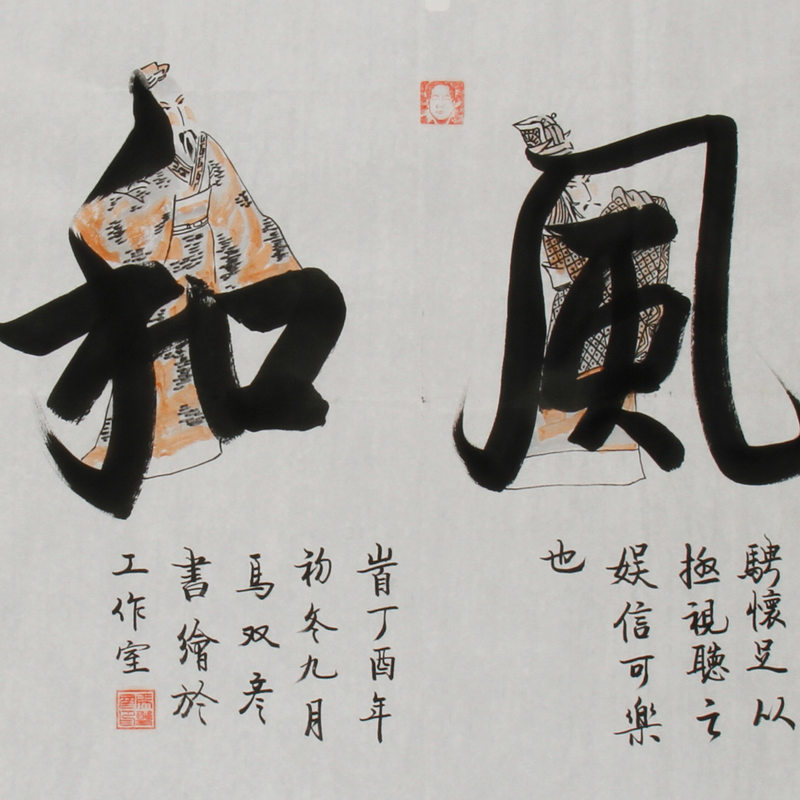 風和
騁懷足以
極視聽之
娱信可樂
也
峕丁酉年
初冬九月
馬双彦
書繪於
工作室